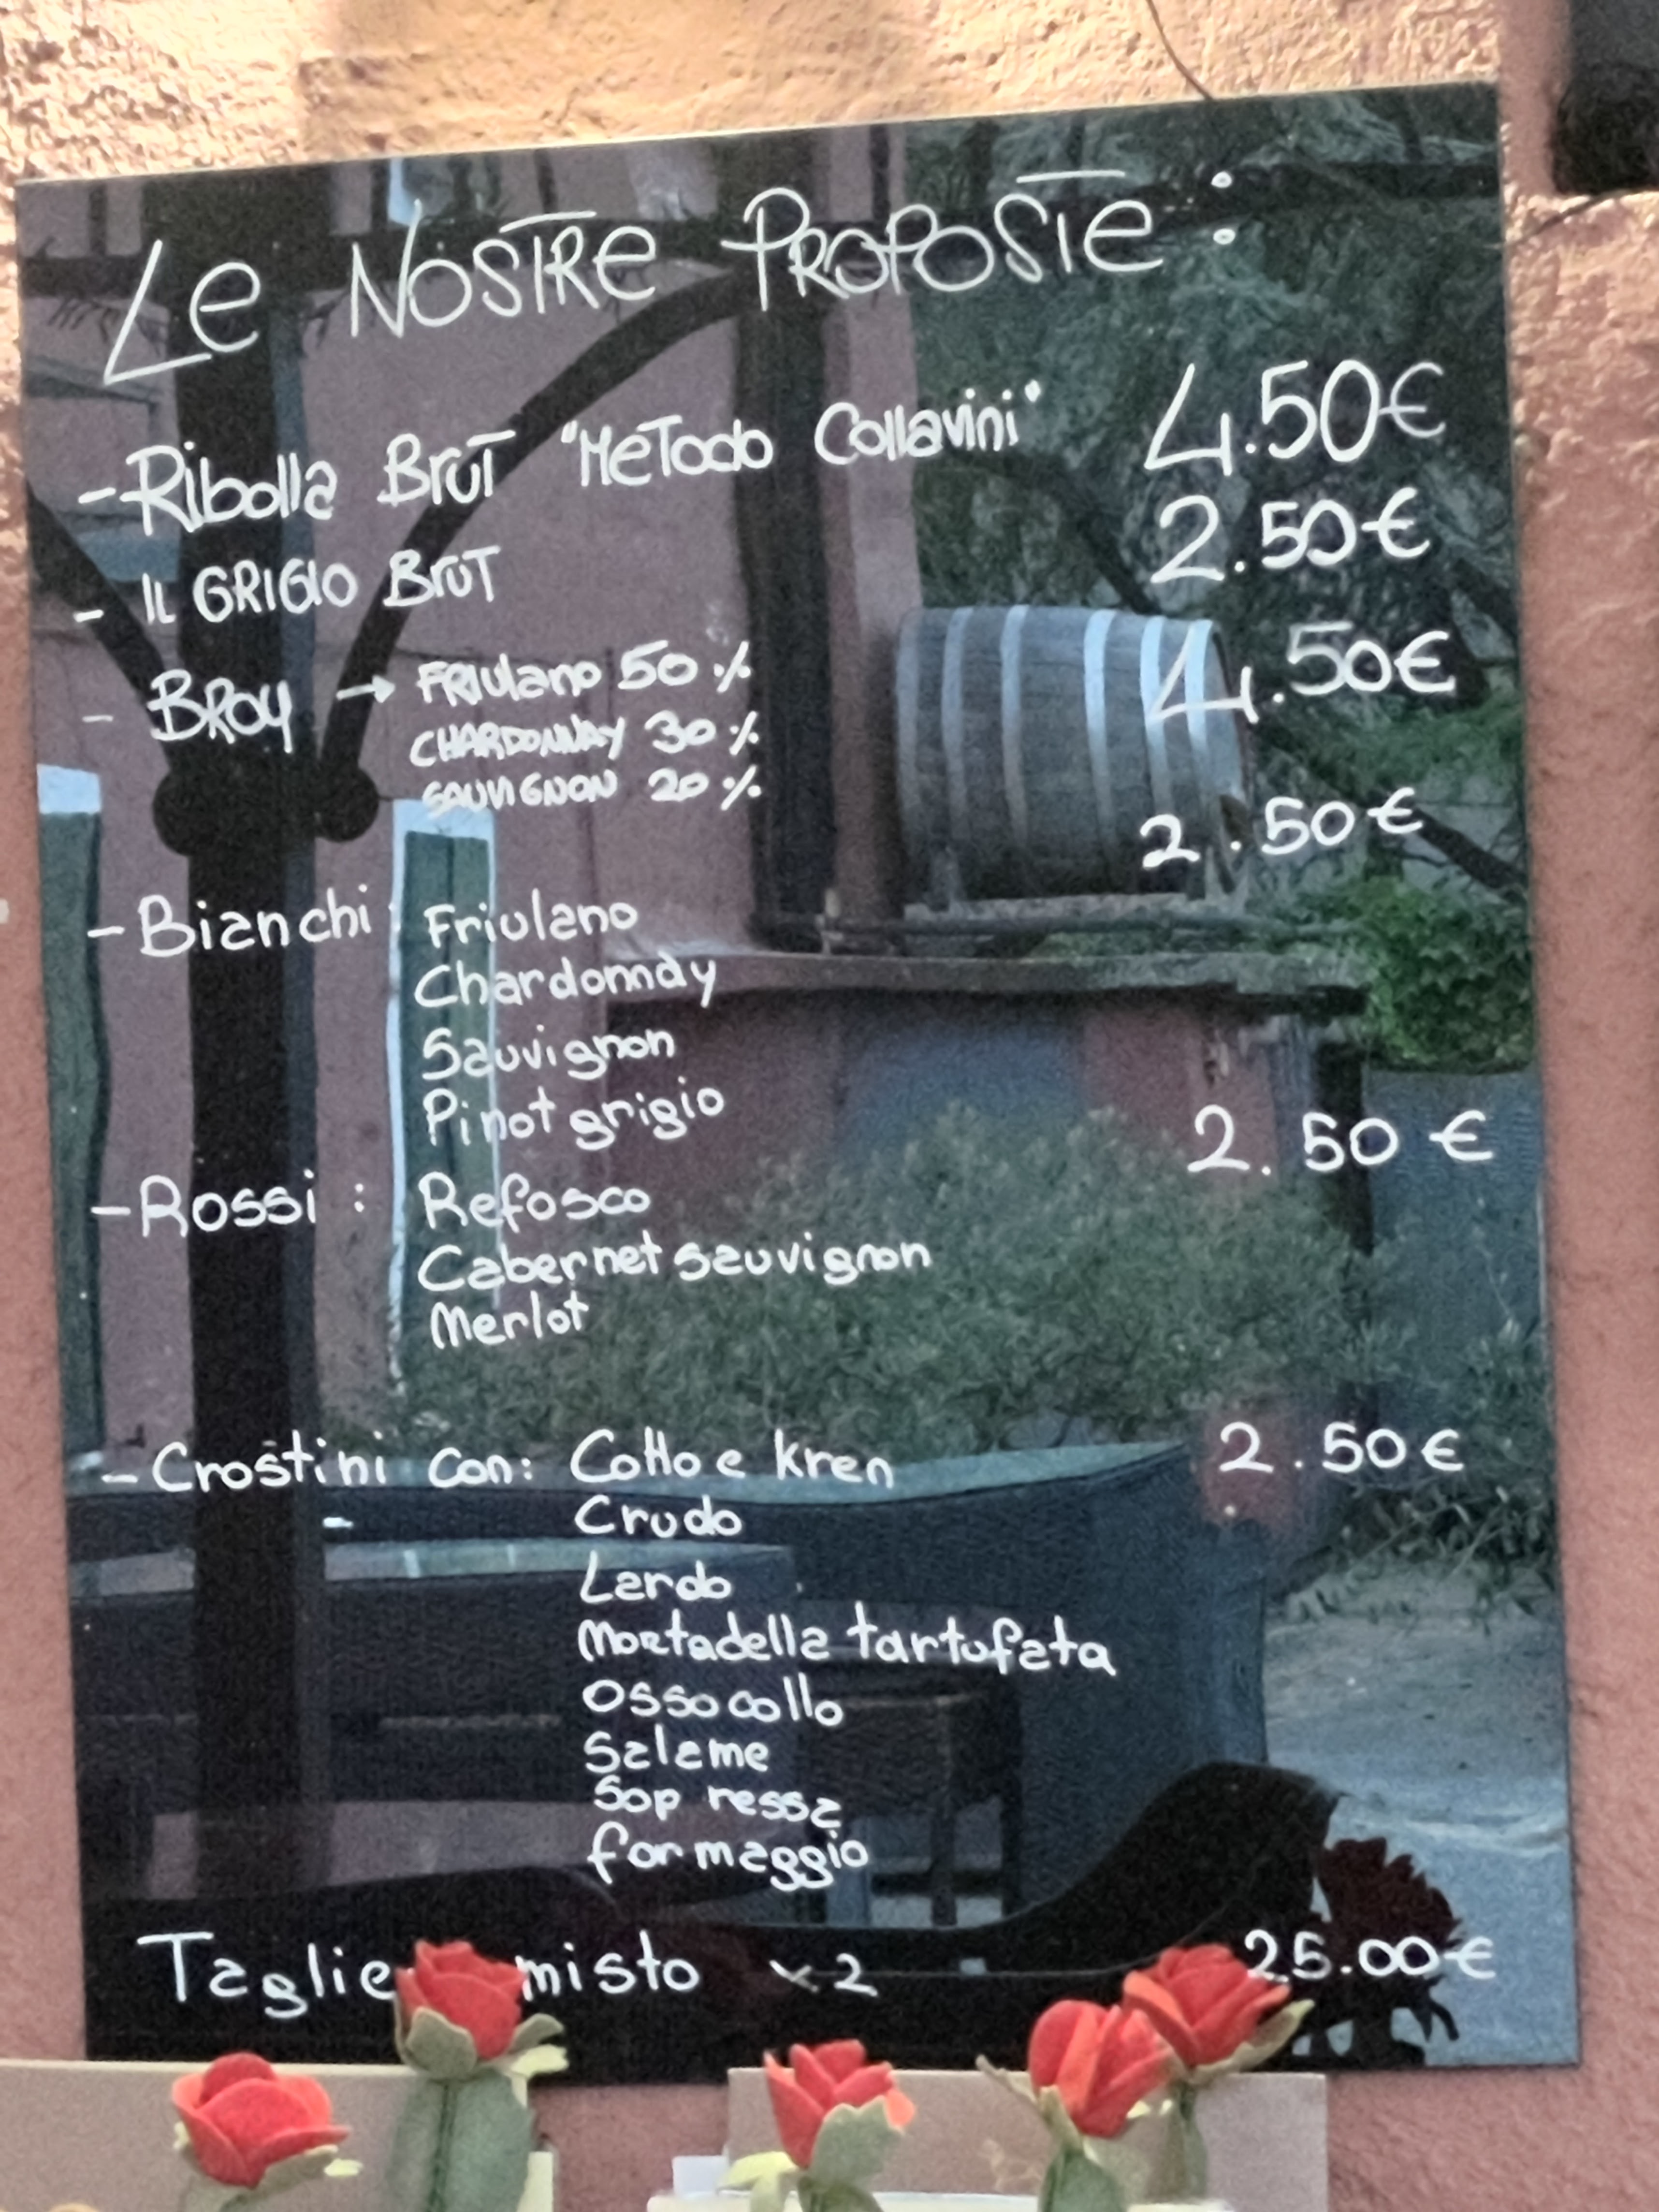 Le NOSTRE PROPOSTE:
- Ribolla BRUT "METODO Collavini" 4.50€
- IL GRIGIO BRUT 2.50€
- BROY → FRIULANO 50% 4.50€
CHARDONNAY 30%
SAUVIGNON 20%
- Bianchi: Friulano 2.50€
Chardonnay
Sauvignon
Pinot grigio
- Rossi: Refosco 2.50€
Cabernet sauvignon
Merlot
- Crostini con: Cotto e kren 2.50€
Crudo
Lardo
Mortadella tartufata
Ossocollo
Salame
Sopressa
formaggio
misto x2 25.00€